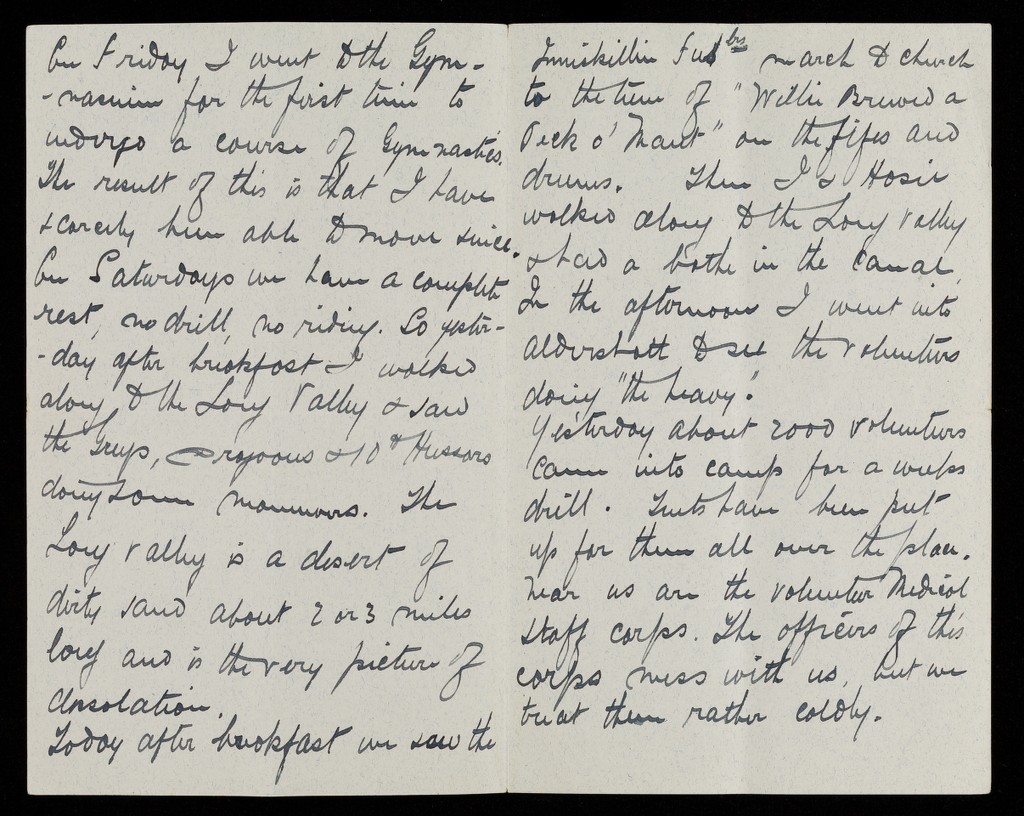 On Friday I went to the Gym-
-nasium for the first time to
undergo a course of Gymnastics.
The result of this is that I have
scarcely been able to move since.
On Saturdays we have a complete
rest, no drill, no riding. So yester-
-day after breakfast I walked
along to the Long Valley & saw
the Greys, Dragoons & 10th Hussars
doing some manouvers. The
Long Valley is a desert of
dirty sand about 2 or 3 miles
long and is the very picture of
desolation.
Today after breakfast we saw the
Inniskillin Fusbrs march to church
to the tune of "Willie Brewed a
Peck o' Maut" on the fifes and
drums. Then I & Hosie
walked along to the Long Valley
& had a bathe in the canal.
In the afternoon I went into
Aldershott to see the volunteers
doing "the heavy".
Yesterday about 2000 volunteers
came into camp for a weeks
drill. Tents have been put
up for them all over the place.
Near us are the volunteer Medical
Staff Corps. The officers of this
corps mess with us, but we
treat them rather coldly.